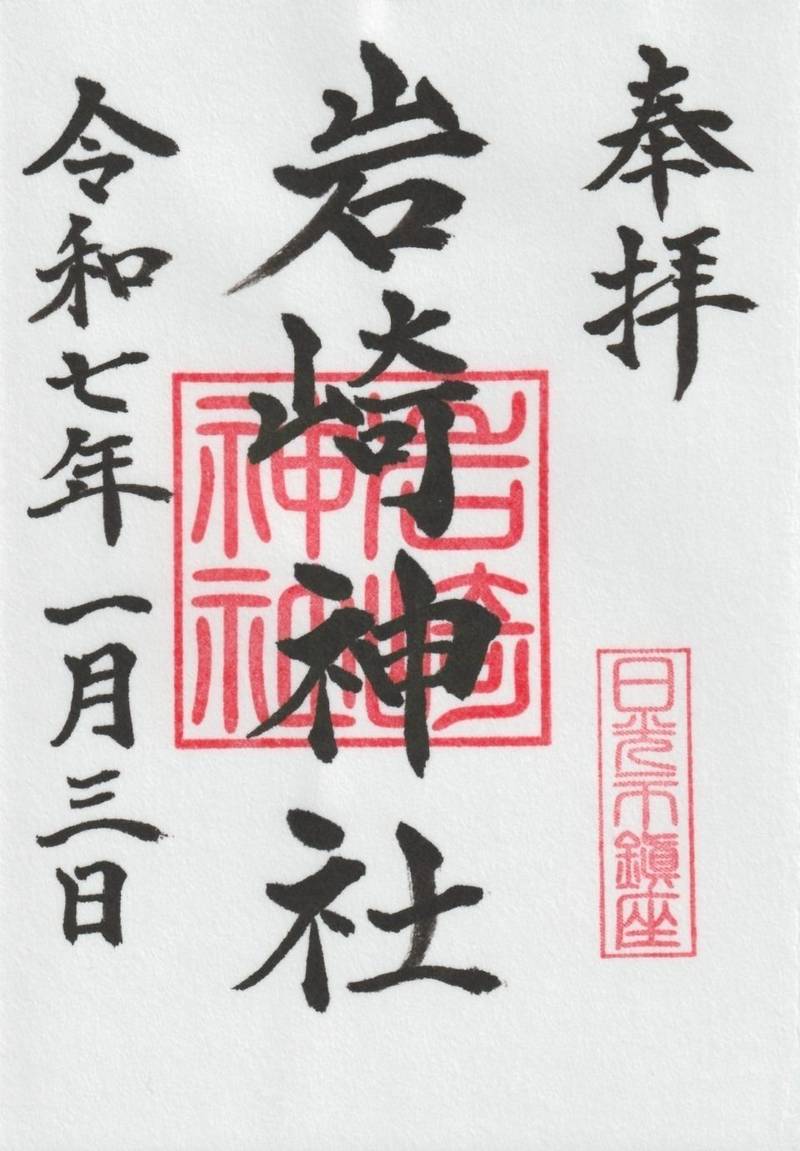 奉拝
日光市鎮座
岩崎神社
岩崎神社
令和七年一月三日